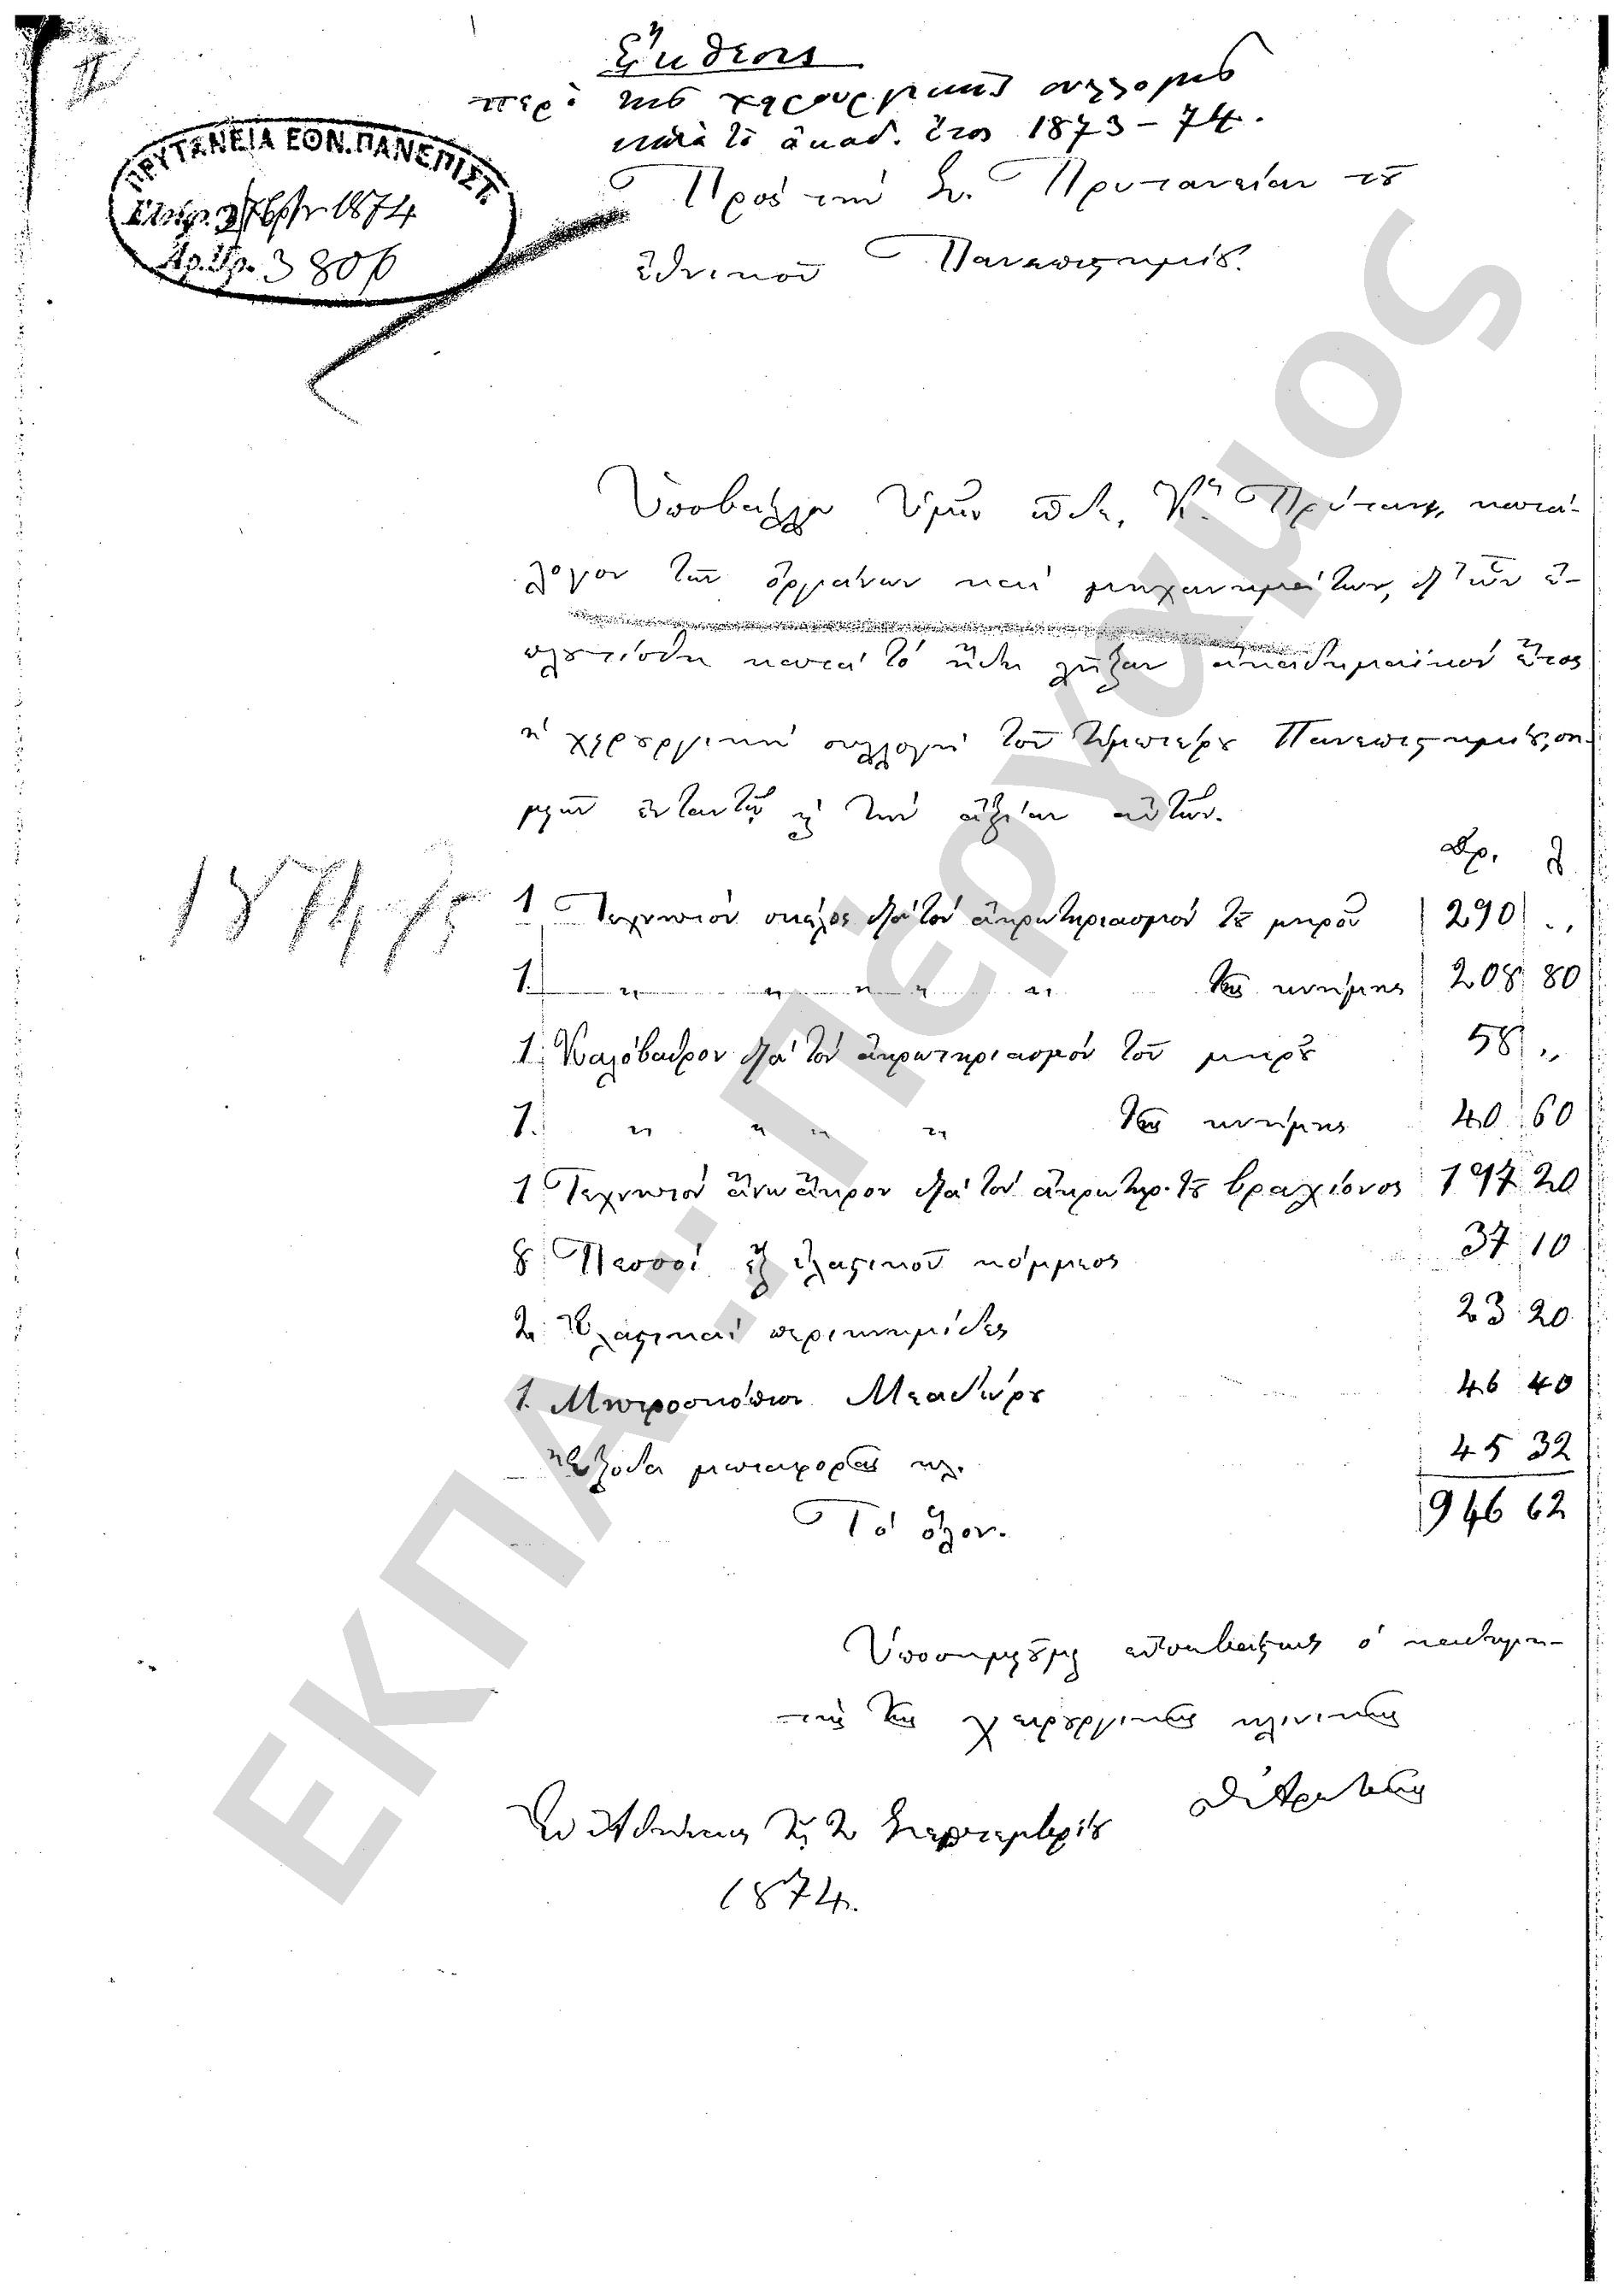 Ἔκθεσις
περὶ τῆς χειρουργικῆς συλλογῆς
κατὰ τὸ ἀκαδ. ἔτος 1873-74.
ΠΡΥΤΑΝΕΙΑ ΕΘΝ.ΠΑΝΕΠΙΣΤ.
1874
Ἀρ.Πρ. 3806
Πρὸς τὴν Σ. Πρυτανείαν τοῦ
ἐθνικοῦ Πανεπιστημίου.
Ὑποβάλλω Ὑμῖν ὧδε, Κε Πρύτανι, κατά-
λογον τῶν ὀργάνων καὶ μηχανημάτων, δι' ὧν ἐ-
πλουτίσθη κατὰ τὸ ἤδη λῆξαν ἀκαδημαϊκὸν ἔτος
ἡ χειρουργικὴ συλλογὴ τοῦ ἡμετέρου Πανεπιστημίου, ση-
μειῶν ἐνταυτῷ καὶ τὴν ἀξίαν αὐτῶν.
Δρ. λ
1874/75
1 Τεχνητὸν σκέλος διὰ τὸν ἀκρωτηριασμὸν τοῦ μηροῦ 290 ,,
1. " " " " " τῆς κνήμης 208 80
1. Καλόβαθρον διὰ τὸν ἀκρωτηριασμὸν τοῦ μηροῦ 58 ,,
1. " " " " τῆς κνήμης 40 60
1 Τεχνητὸν ἄνω ἄκρον διὰ τὸν ἀκρωτηρ. τοῦ βραχίονος 197 20
8 Πεσσοὶ ἐξ ἐλαστικοῦ κόμμεος 37 10
2. Ἐλαστικαὶ περικνημίδες 23 20
1. Μικροσκόπιον 46 40
Ἔξοδα μεταφορᾶς κλ. 45 32
Τὸ ὅλον. 946 62
Ὑποσημειοῦμαι εὐσεβάστως ὁ καθηγη-
τὴς τῆς χειρουργικῆς κλινικῆς
Ἐν Ἀθήναις τῇ 2 Σεπτεμβρίου
1874.
ΕΚΠΑ..:Περγαμος